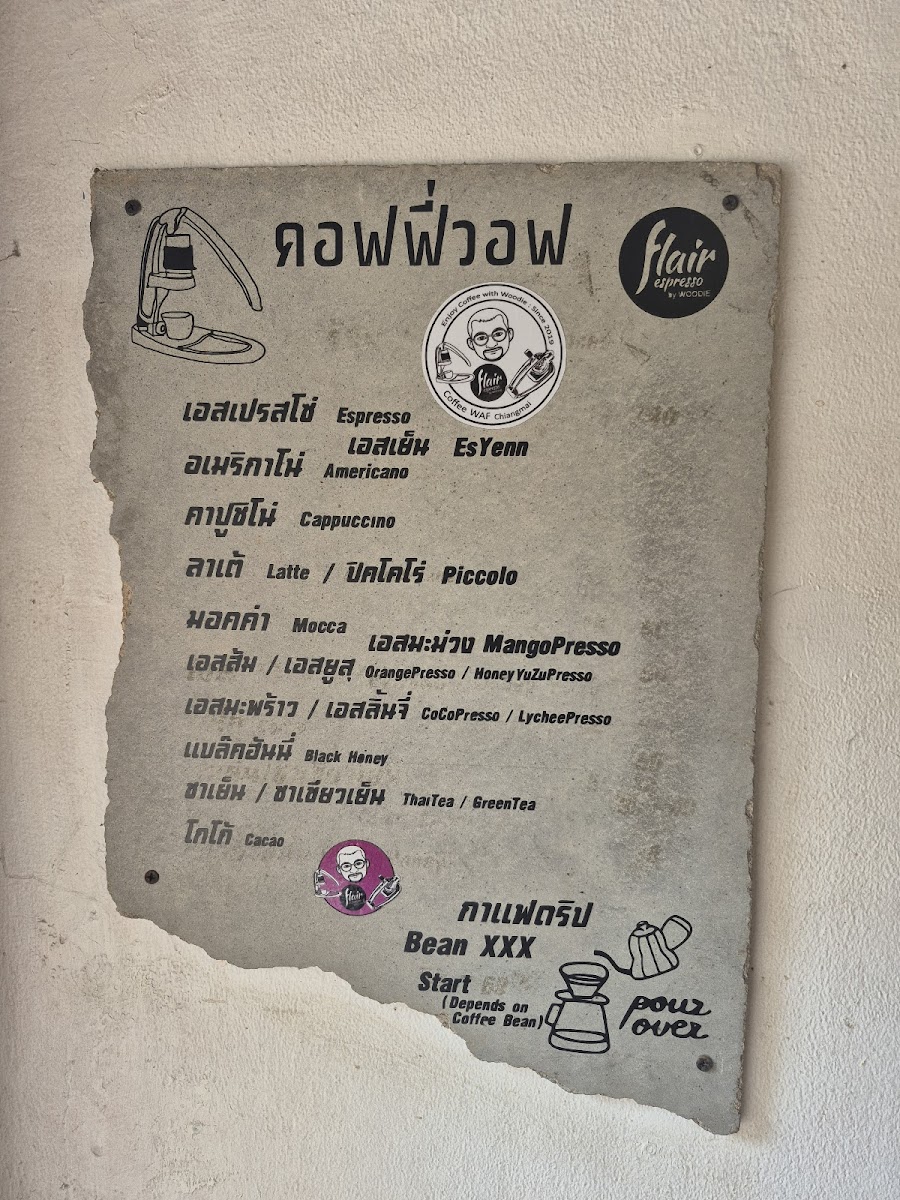 คอฟฟี่วอฟ
flair
espresso
by WOODIE
Enjoy Coffee with Woodie . Since 2019
flair
Coffee WAF Chiangmai
เอสเปรสโซ่ Espresso
เอสเย็น EsYenn
อเมริกาโน่ Americano
คาปูชิโน่ Cappuccino
ลาเต้ Latte / ปิคโคโร่ Piccolo
มอคค่า Mocca
เอสมะม่วง MangoPresso
เอสส้ม / เอสยูสุ OrangePresso / HoneyYuZuPresso
เอสมะพร้าว / เอสลิ้นจี่ CoCoPresso / LycheePresso
แบล๊คฮันนี่ Black Honey
ชาเย็น / ชาเขียวเย็น ThaiTea / GreenTea
โกโก้ Cacao
flair
กาแฟดริป
Bean XXX
Start
(Depends on
Coffee Bean)
pour
over